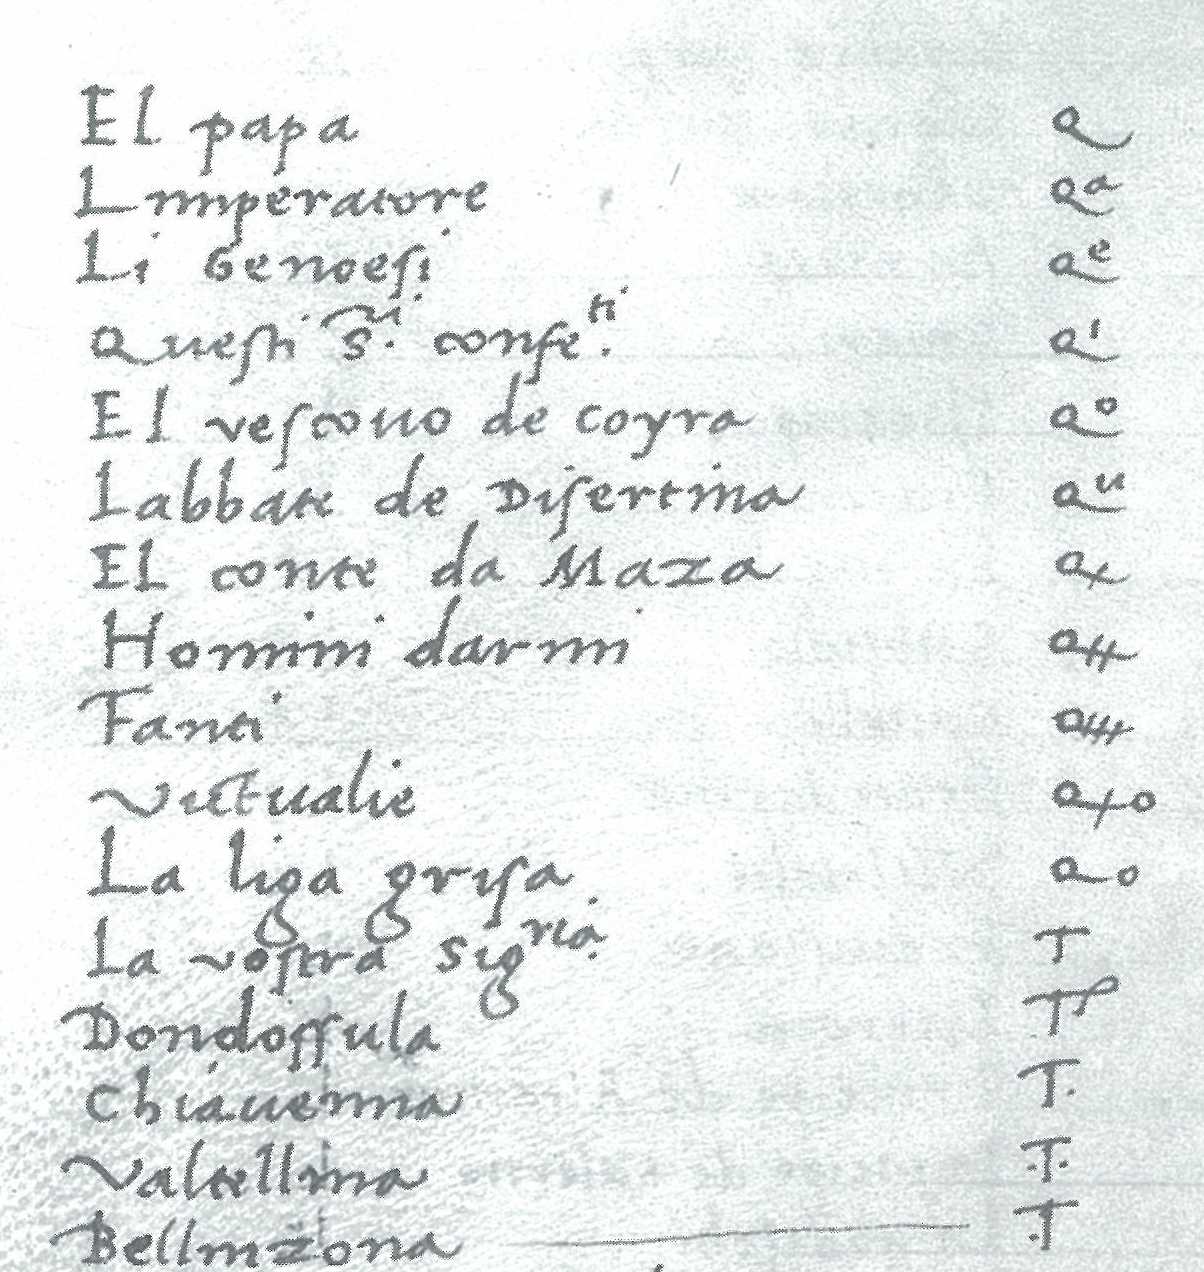 El papa Q
Limperatore Qa
Li Genoesi Qe
Questi S.ri confe.ti Qi
El vescouo de coyra Qo
Labbate de Disertina Qu
El conte da Maza
Homini darmi
Fanti
Victualie
La liga grisa Qo
La vostra sig.ria T
Dondossula
Chiauenna T.
Valtellina .T.
Bellinzona .T